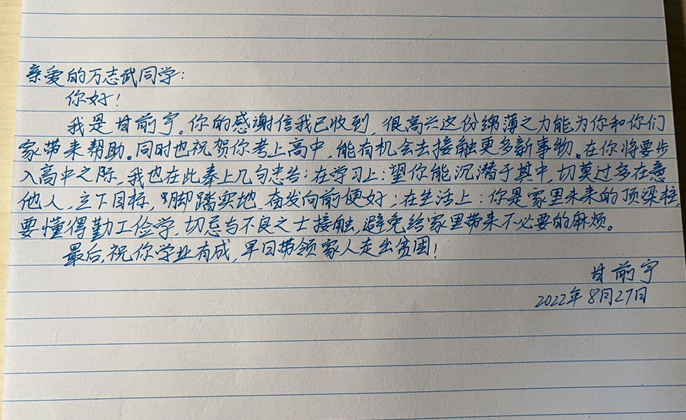 亲爱的万志武同学：
你好！
我是甘前宇。你的感谢信我已收到，很高兴这份绵薄之力能为你和你们
家带来帮助。同时也祝贺你考上高中，能有机会去接触更多新事物。在你将要步
入高中之际，我也在此奉上几句忠告：在学习上：望你能沉潜于其中，切莫过多在意
他人，立下目标，脚踏实地，奋发向前便好；在生活上：你是家里未来的顶梁柱，
要懂得勤工俭学，切忌与不良之士接触，避免给家里带来不必要的麻烦。
最后，祝你学业有成，早日带领家人走出贫困！
甘前宇
2022年8月27日